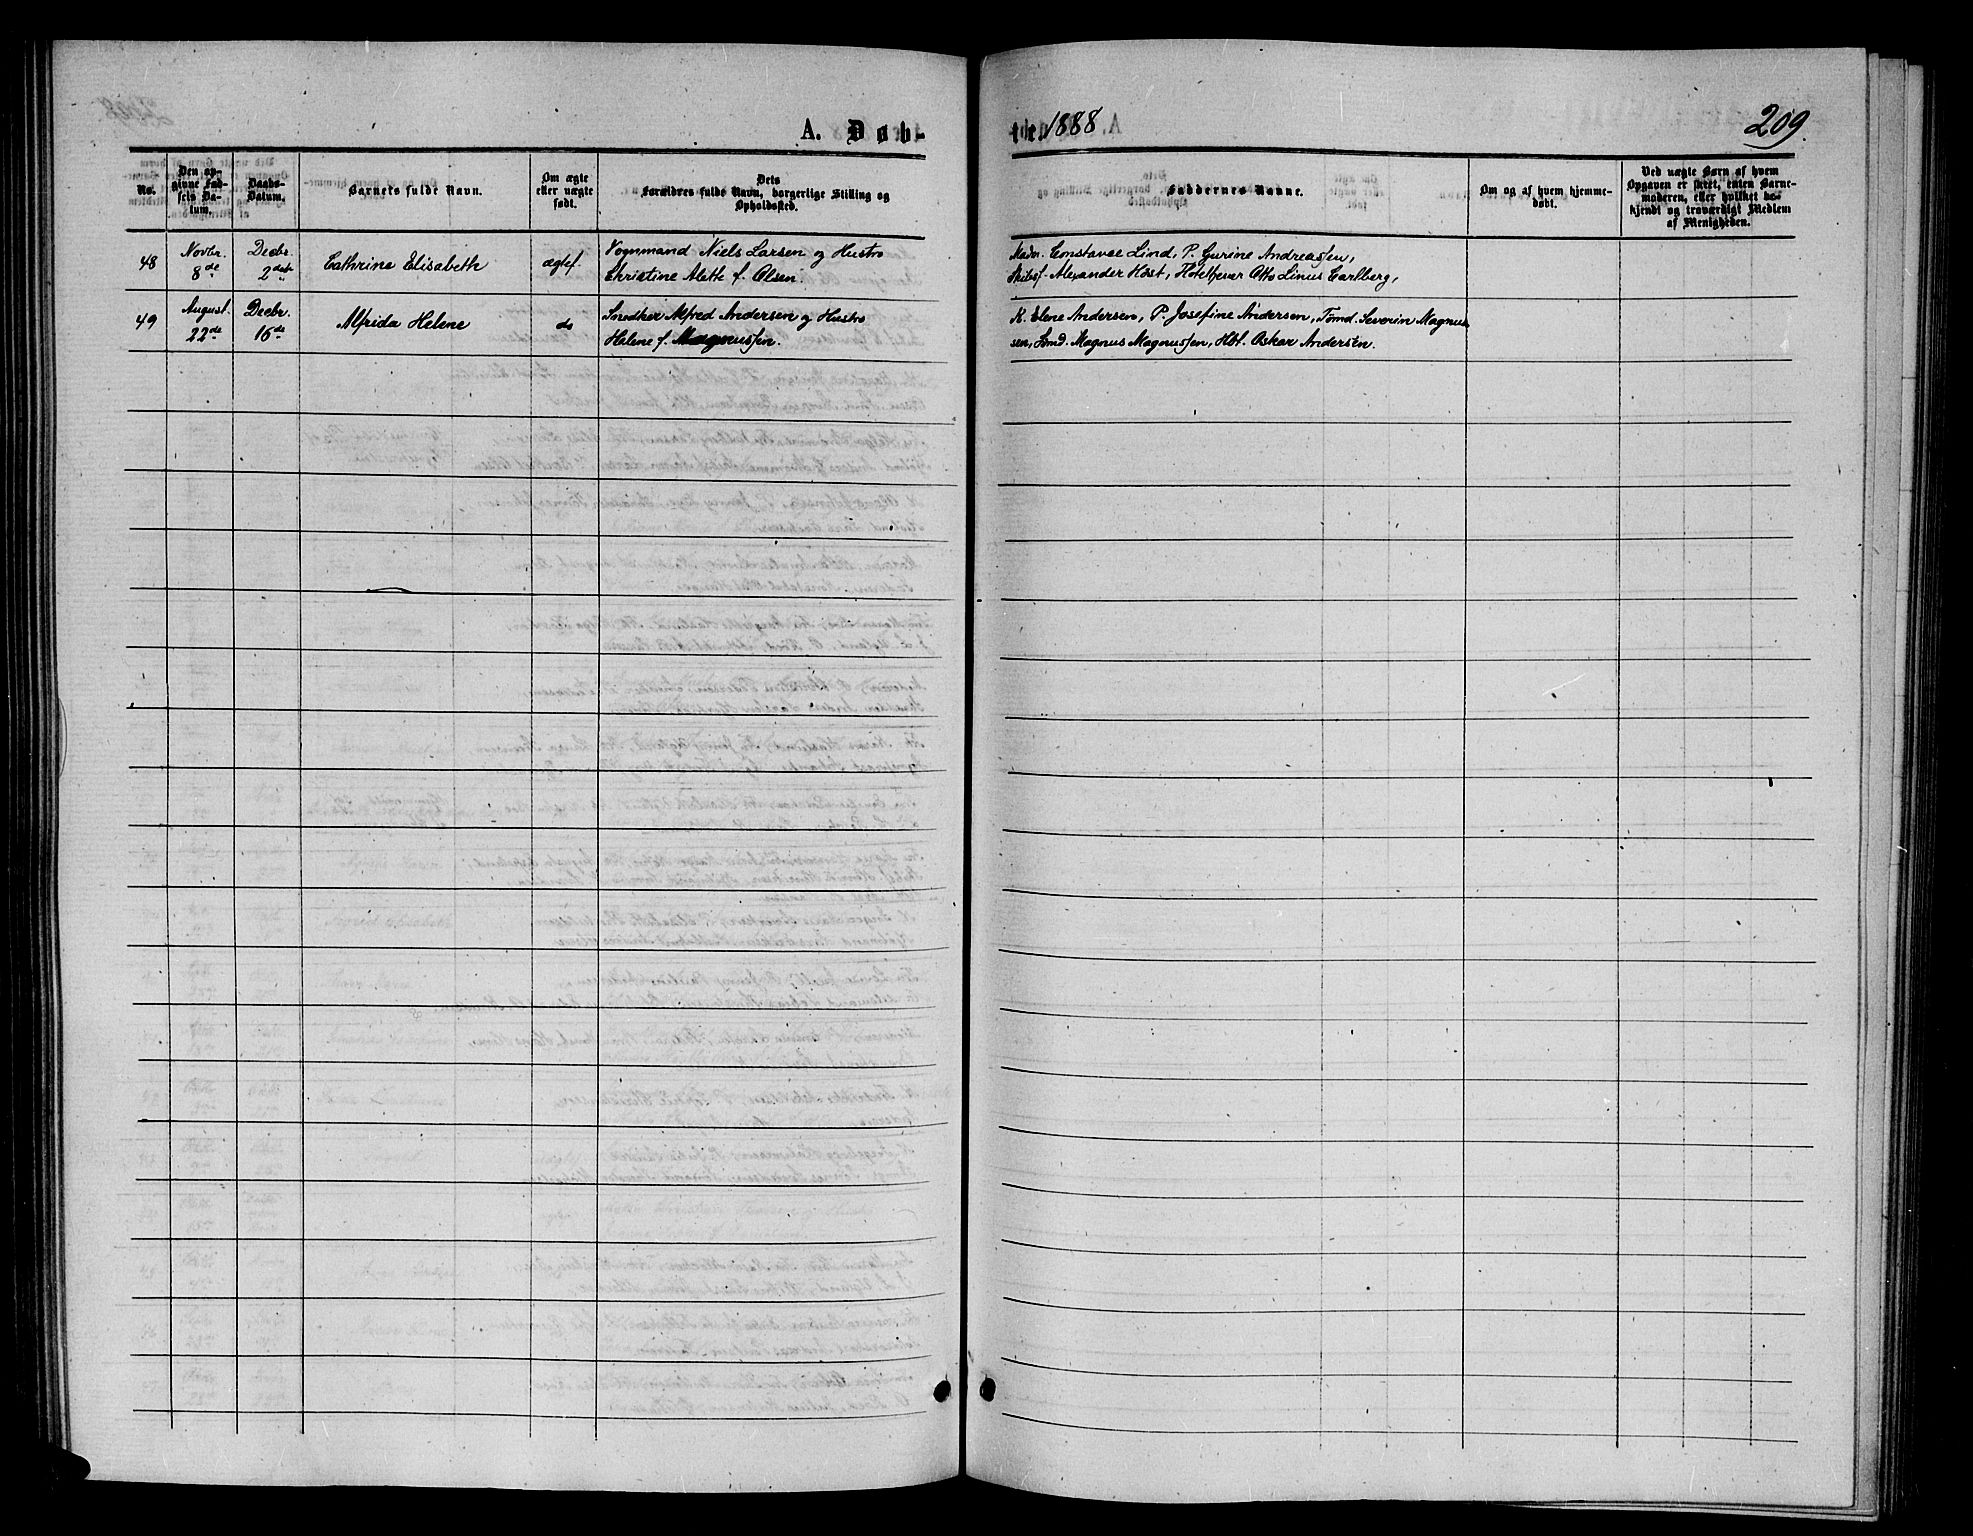 A. Døb-
No.
Den op-
givne Fød-
sels Da-
tum.
Daabs-
Datum.
Barnets fulde Navn.
Om ægte
eller uægte
født.
Dets
Forældres fulde Navn, borgerlige Stilling og
Opholdssted.
48
Novbr.
8de
Decbr.
2den
Cathrine Elisabeth
ægtef.
Vognmand Niels Larsen og Hustro
Christine Aleth f. Olsen.
49
August.
22de
Decbr.
16de
Alfrida Helene
do
Snedker Alfred Andersen og Hustro
Helene f. Magnussen.
te. 1888
209.
Faddernes Navne.
Om og af hvem hjemme-
døbt.
Ved uægte Børn af hvem
Opgaven er skeet, enten Barne-
moderen, eller hvilket be-
kjendt og troværdigt Medlem
af Menigheden.
Madm. Constance Lind, P. Gurine Andreassen,
Skibsf. Alexander Høst, Hotelherer Otto Linus Carlberg,
K. Elene Andersen, P. Josefine Andersen, Tømd. Severin Magnus
sen, Sømd. Magnus Magnussen, Hbt. Oskar Andersen.